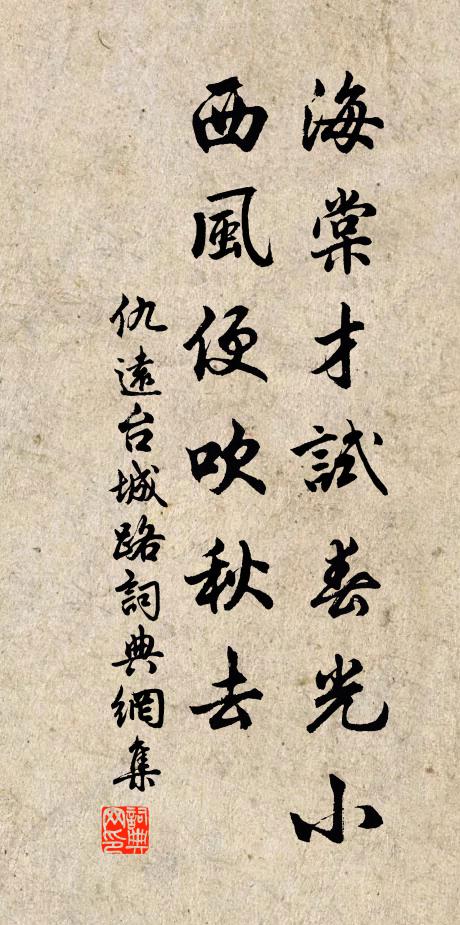 海棠才試春光小
西風便吹秋去
仇遠台城路詞典網集
詞典網印